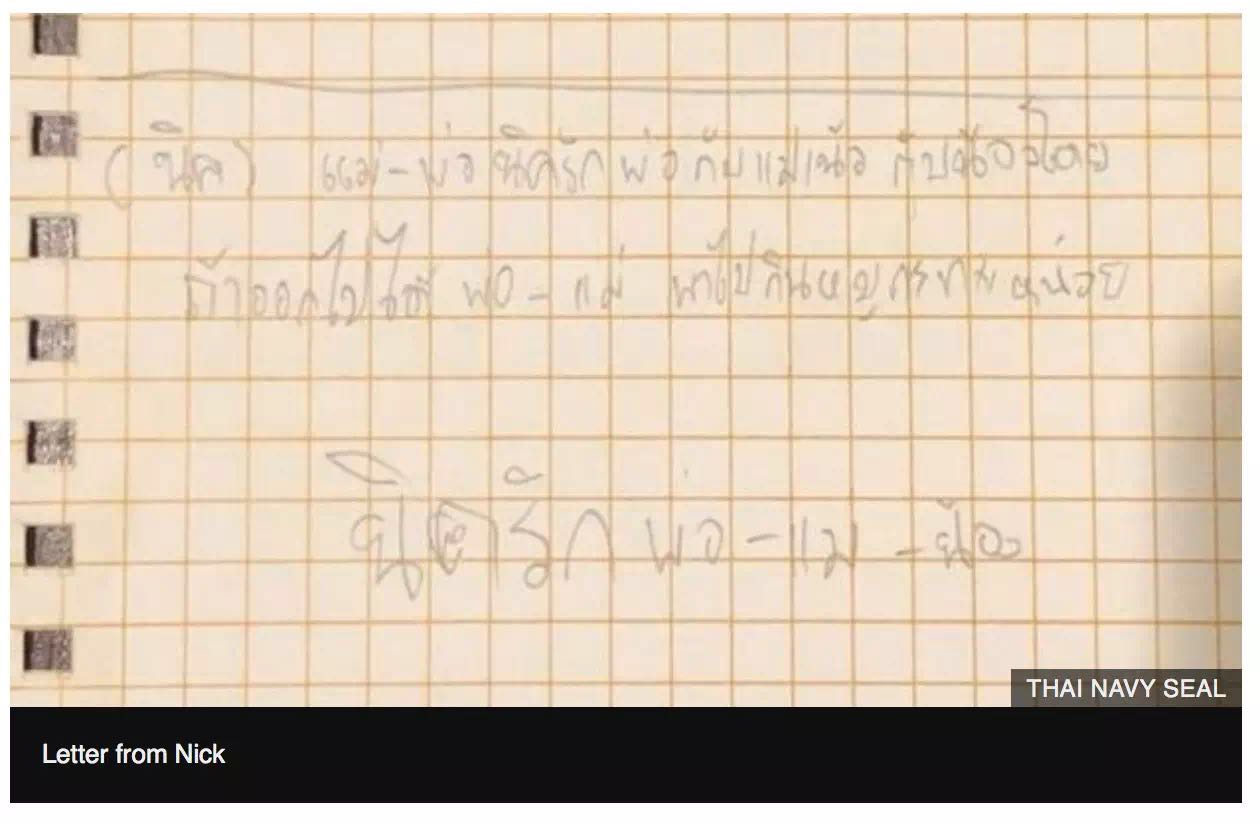 (นิค) แม่-พ่อ นิครักพ่อกับแม่เน้อ กับน้องโดย
ถ้าออกไปได้ พ่อ-แม่ พาไปกินหมูกระทะหน่อย
นิครัก พ่อ-แม่-น้อง
THAI NAVY SEAL
Letter from Nick